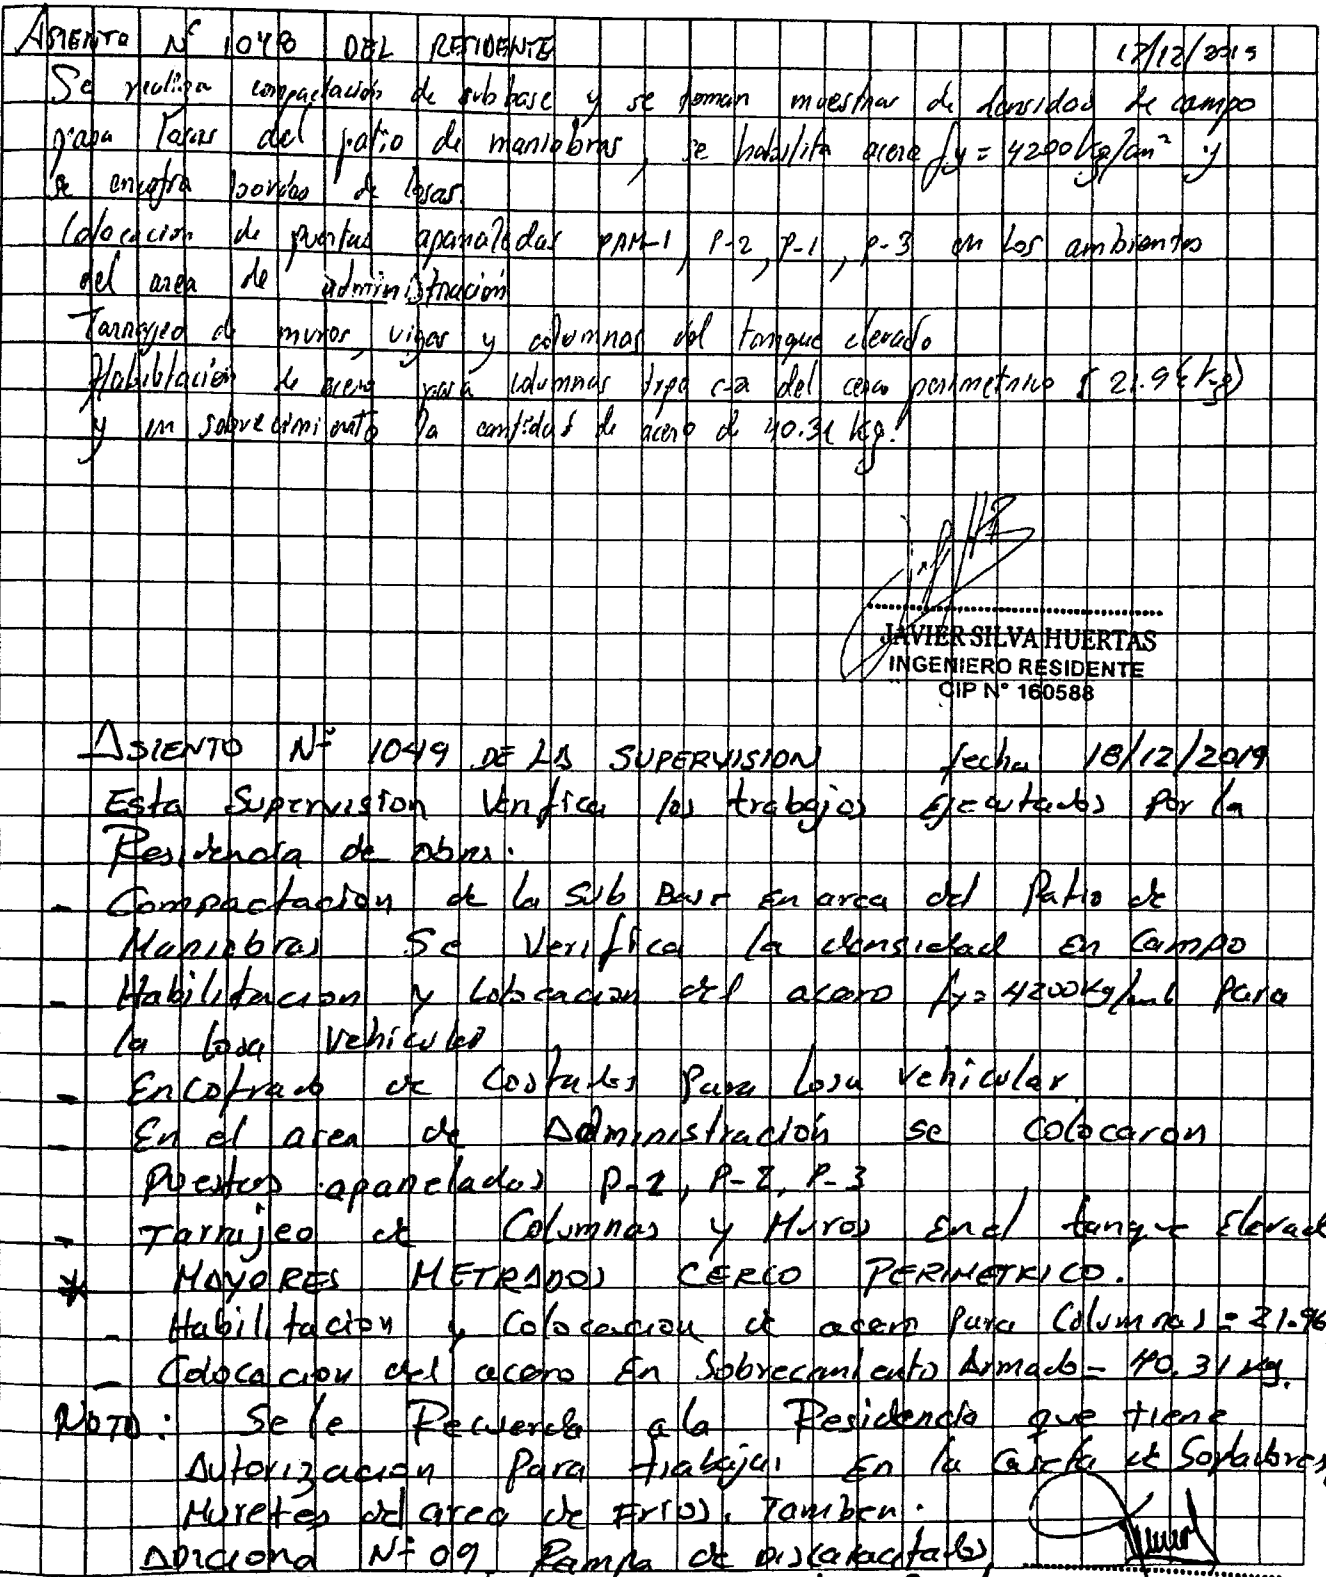 ASIENTO N° 1048 DEL RESIDENTE 17/12/2019
Se realiza compactación de sub base y se toman muestras de densidad de campo
para losas del patio de maniobras, se habilita acero fy = 4200 kg/cm² y
se encofra bordes de losas.
Colocacion de puertas apaneladas PAM-1, P-2, P-1, P-3 en los ambientes
del area de administración
Tarrajeo de muros, vigas y columnas del tanque elevado
Habilitación de acero para columnas tipo c-2 del cerco perimetrico (21.96 kg)
y en sobrecimiento la cantidad de acero de 40.31 kg.
JAVIER SILVA HUERTAS
INGENIERO RESIDENTE
CIP N° 160588
ASIENTO Nº 1049 DE LA SUPERVISION fecha 18/12/2019
Esta Supervision Verifica los trabajos Ejecutados Por la
Residencia de obra.
- Compactacion de la Sub Base En area del Patio de
Maniobras Se Verifica la densidad en Campo
- Habilitacion y Colocacion del acero fy = 4200 kg/cm2 Para
la losa Vehicular
- Encofrado de Costados Para losa vehicular
- En el area de Administración se colocaron
Puertas apaneladas P-1, P-2, P-3
- Tarrajeo de Columnas y Muros En el tanque Elevad
* MAYORES METRADOS CERCO PERIMETRICO.
- Habilitacion y Colocacion de acero Para Columnas = 21.96
- Colocacion del acero En Sobrecimiento Armado = 40.31 kg.
NOTA: Se le Recuerda a la Residencia que tiene
Autorizacion Para trabajar En la Caseta de Sopladores,
Muretes del area de Frios. Tambien.
ADICIONA Nº 09 Rampa de Discapacitados